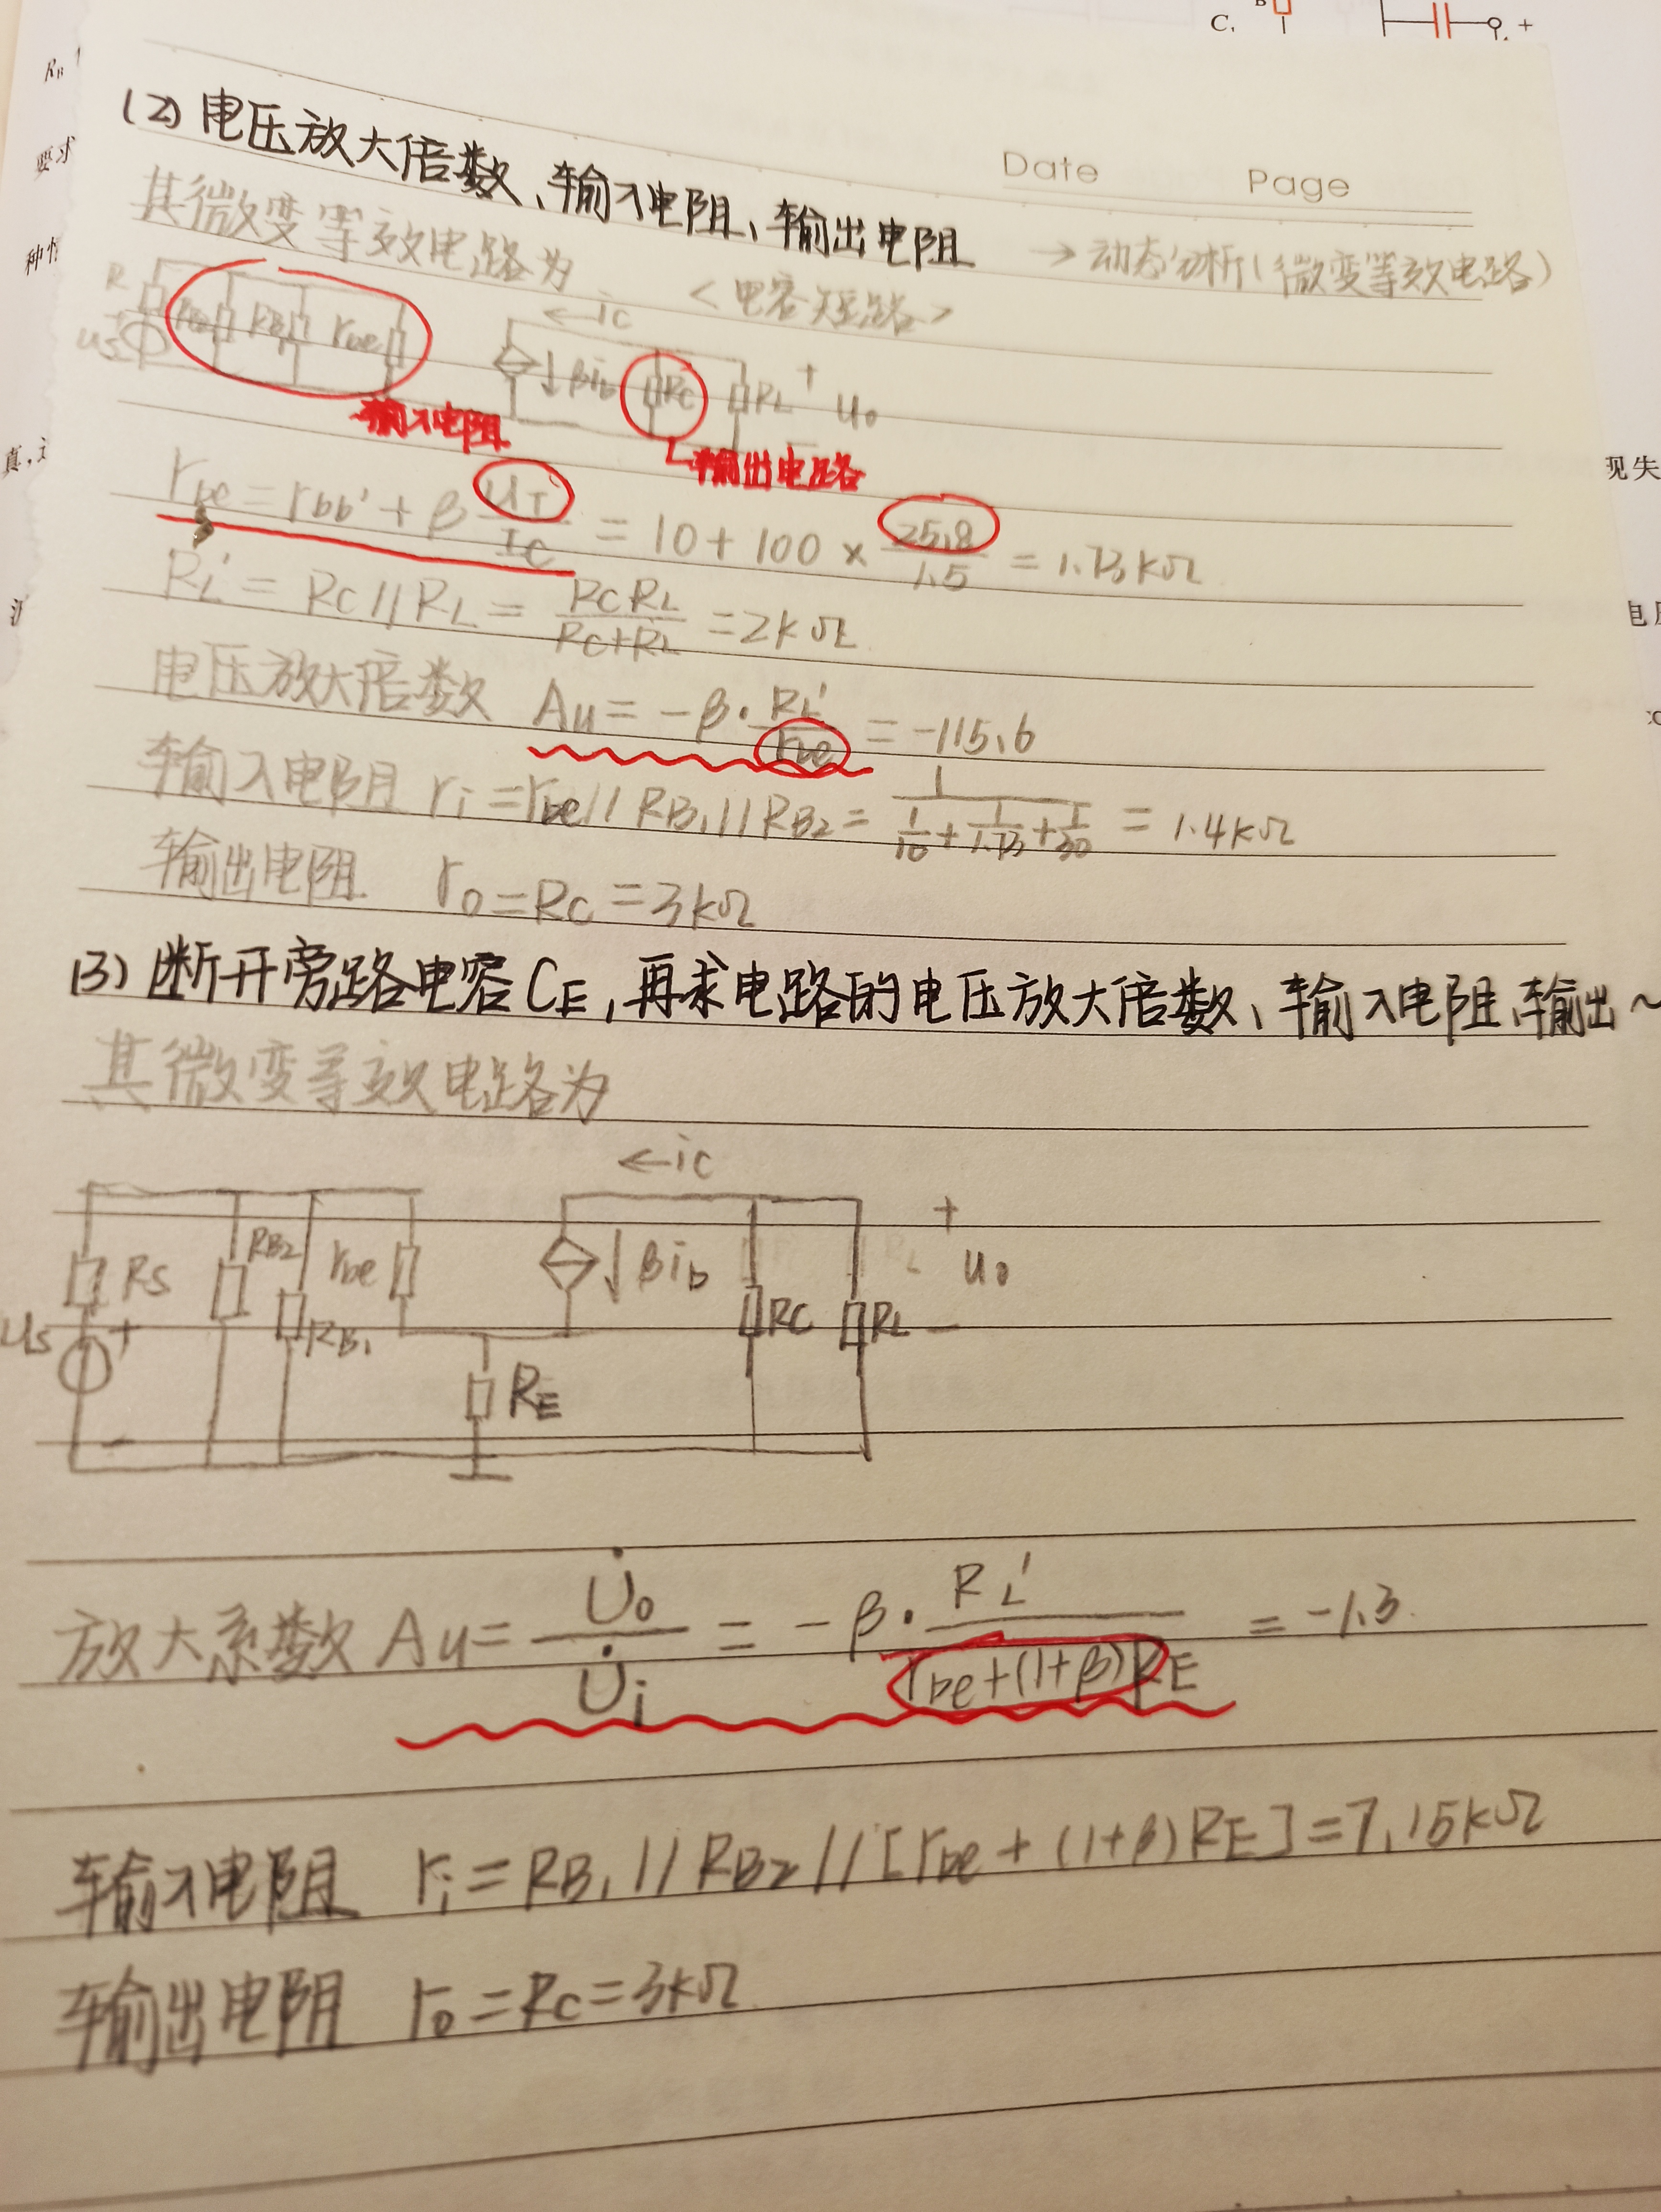 C. B +
RB
要求
种情
真,
现失
电
Date Page
(2) 电压放大倍数、输入电阻、输出电阻
→ 动态分析(微变等效电路)
其微变等效电路为
<电容短路>
R RB2 RB1 rbe ← ic
us ↓ βib RC RL + uo
输入电阻
输出电路
rbe = rbb' + β UT/IC = 10 + 100 × 25.8/1.5 = 1.73kΩ
RL' = RC // RL = RC RL/RC+RL = 2kΩ
电压放大倍数 Au = -β · RL'/rbe = -115.6
输入电阻 ri = rbe // RB1 // RB2 = 1/(1/10 + 1/1.73 + 1/30) = 1.4kΩ
输出电阻 ro = RC = 3kΩ
(3) 断开旁路电容CE, 再求电路的电压放大倍数、输入电阻、输出~
其微变等效电路为
← ic
RS RB2 rbe ↓ βib + uo
us + RB1 RC RL −
− RE
放大系数 Au = U̇o/U̇i = -β · RL'/rbe+(1+β)RE = -1.3
输入电阻 ri = RB1 // RB2 // [rbe + (1+β) RE] = 7.15kΩ
输出电阻 ro = RC = 3kΩ